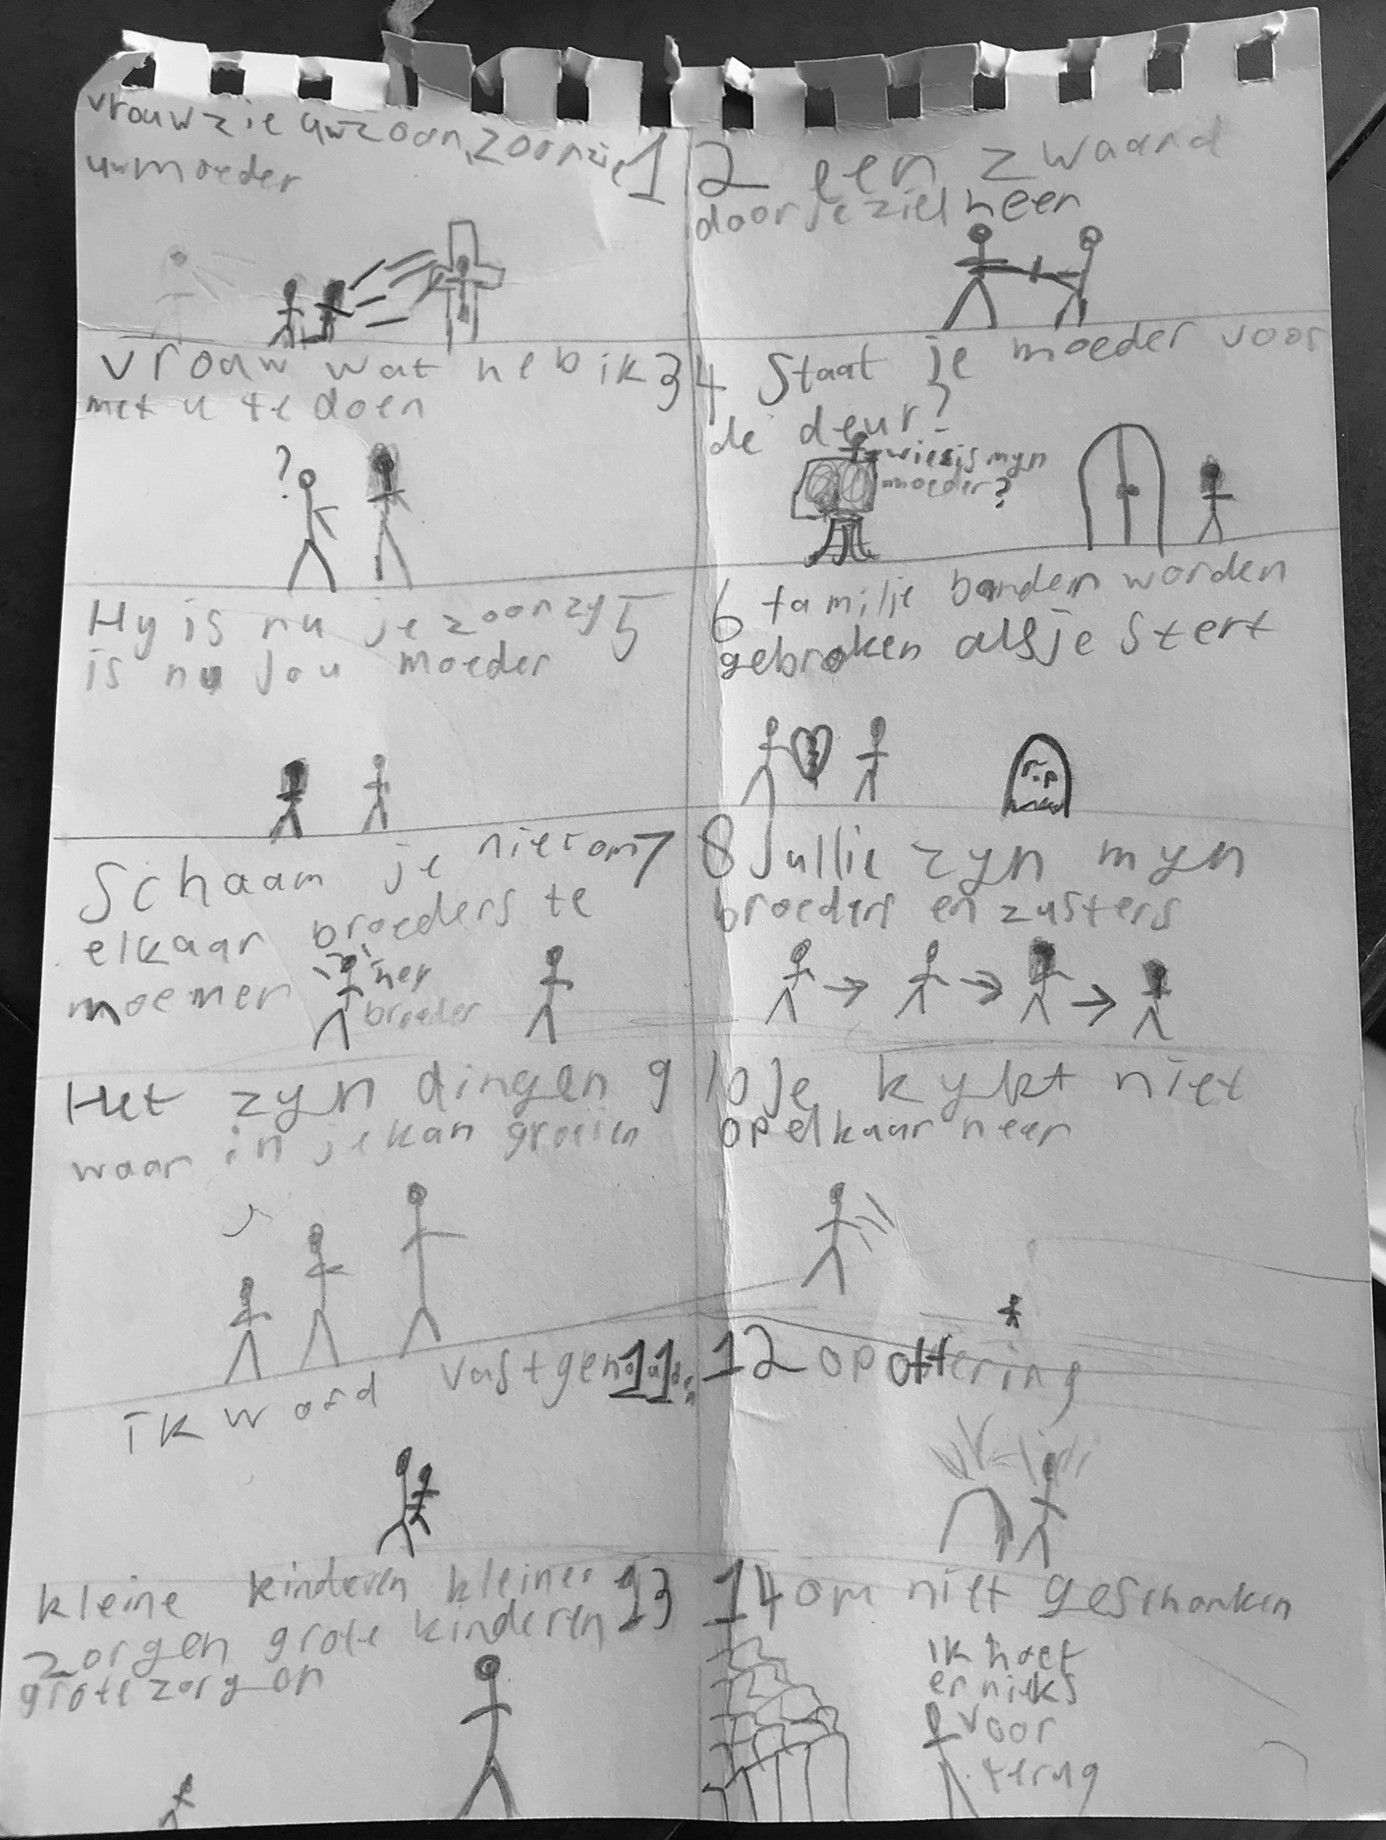 vrouw zie uw zoon, zoon zie 1
uw moeder
2 een zwaard
door je ziel heen
vrouw wat heb ik 3
met u te doen
4 Staat je moeder voor
de deur?
wie is mijn
moeder?
Hy is nu je zoon zy 5
is nu jou moeder
6 familje banden worden
gebroken als je stert
r.i.p
Schaam je niet om 7
elkaar broeders te
noemen
hey
broeder
8 Jullie zyn myn
broeders en zusters
Het zyn dingen 9
waar in je kan groeien
10 Je kykt niet
op elkaar neer
ik word vastgehouden 11
12 opoffering
kleine kinderen kleine 13
zorgen grote kinderen
grote zorgen
14 om niet geschonken
ik hoef
er niks
voor
terug